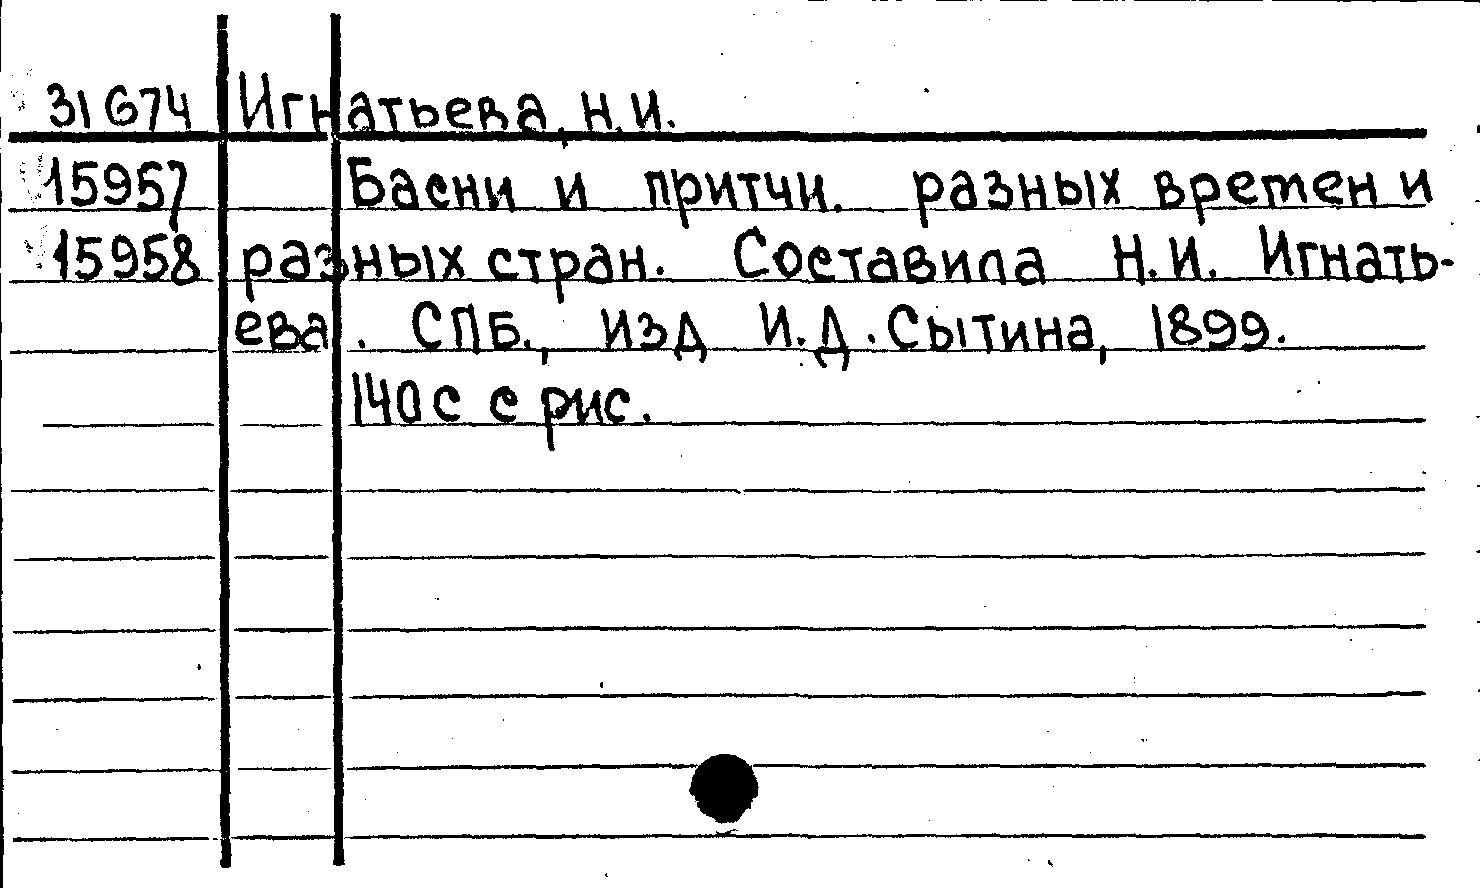 31674 Игнатьева, Н.И.
15957 Басни и притчи. разных времен и
15958 разных стран. Составила Н.И. Игнать-
ева. СПБ., изд И.Д. Сытина, 1899.
140с с рис.